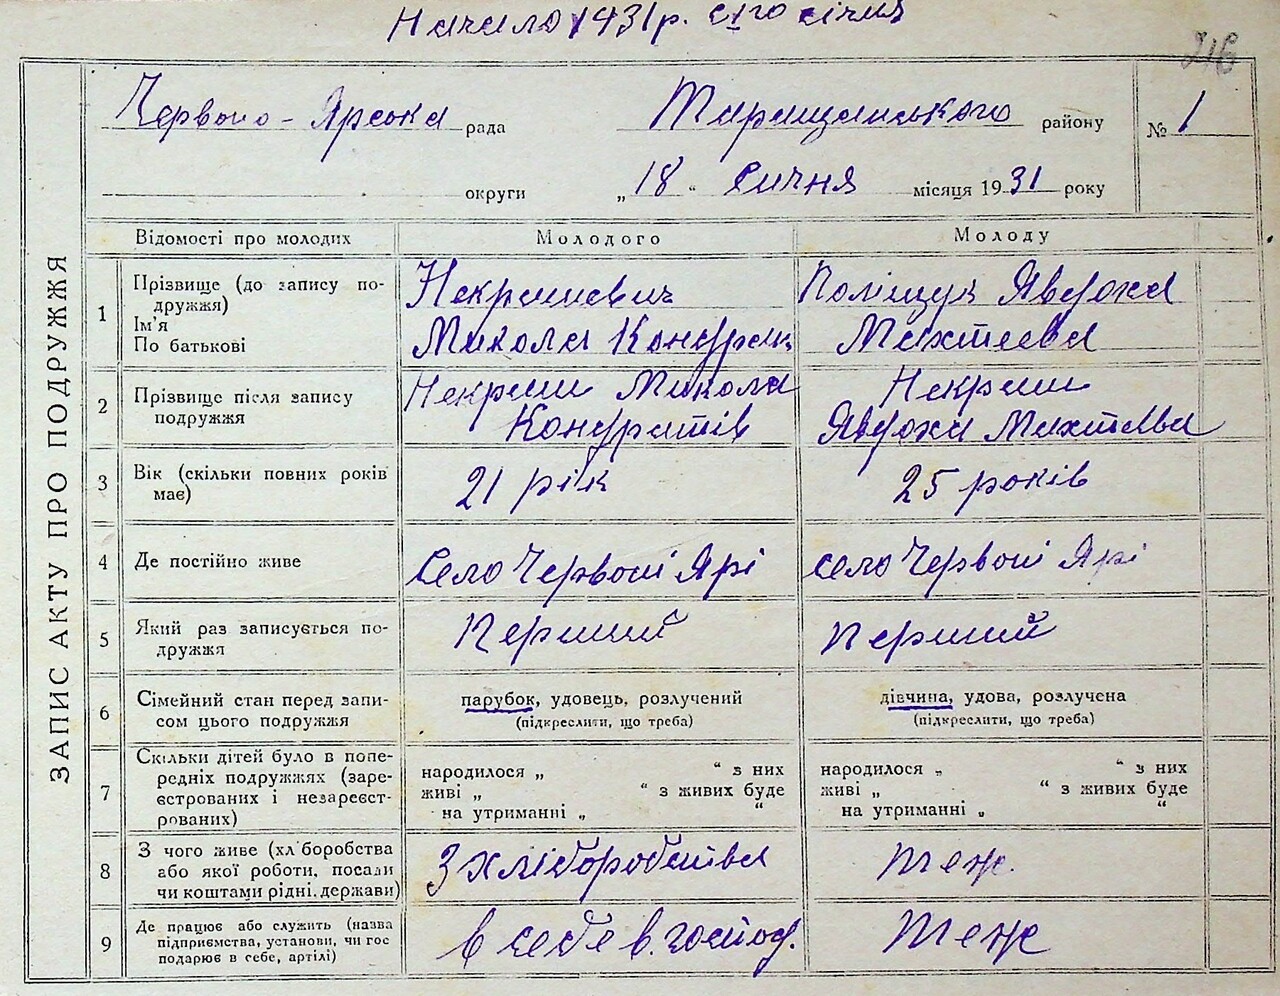 Начало 1931 р. с 1го січня
216
Червоно-Ярська рада Таращанського району № 1
округи „18“ Січня місяця 1931 року
ЗАПИС АКТУ ПРО ПОДРУЖЖЯ
Відомості про молодих Молодого Молоду
1 Прізвище (до запису по-
дружжя)
Ім'я
По батькові
Некрашевич
Микола Кондрат
Поліщук Явдоха
Махтеєва
2 Прізвище після запису
подружжя
Некраш Микола
Кондратів
Некраш
Явдоха Махтєва
3 Вік (скільки повних років
має)
21 рік
25 років
4 Де постійно живе
Село Червоні Ярі
село Червоні Ярі
5 Який раз записується по-
дружжя
Перший
Перший
6 Сімейний стан перед запи-
сом цього подружжя
парубок, удовець, розлучений
(підкреслити, що треба)
дівчина, удова, розлучена
(підкреслити, що треба)
7 Скільки дітей було в попе-
редніх подружжях (заре-
єстрованих і незареєст-
рованих)
народилося „ “ з них
живі „ “ з живих буде
на утриманні „ “
народилося „ “ з них
живі „ “ з живих буде
на утриманні „ “
8 З чого живе (хл боробства
або якої роботи, посади
чи коштами рідні, держави)
З хліборобства
теж.
9 Де працює або служить (назва
підприємства, установи, чи гос
подарює в себе, артілі)
в себе в. господ.
теж